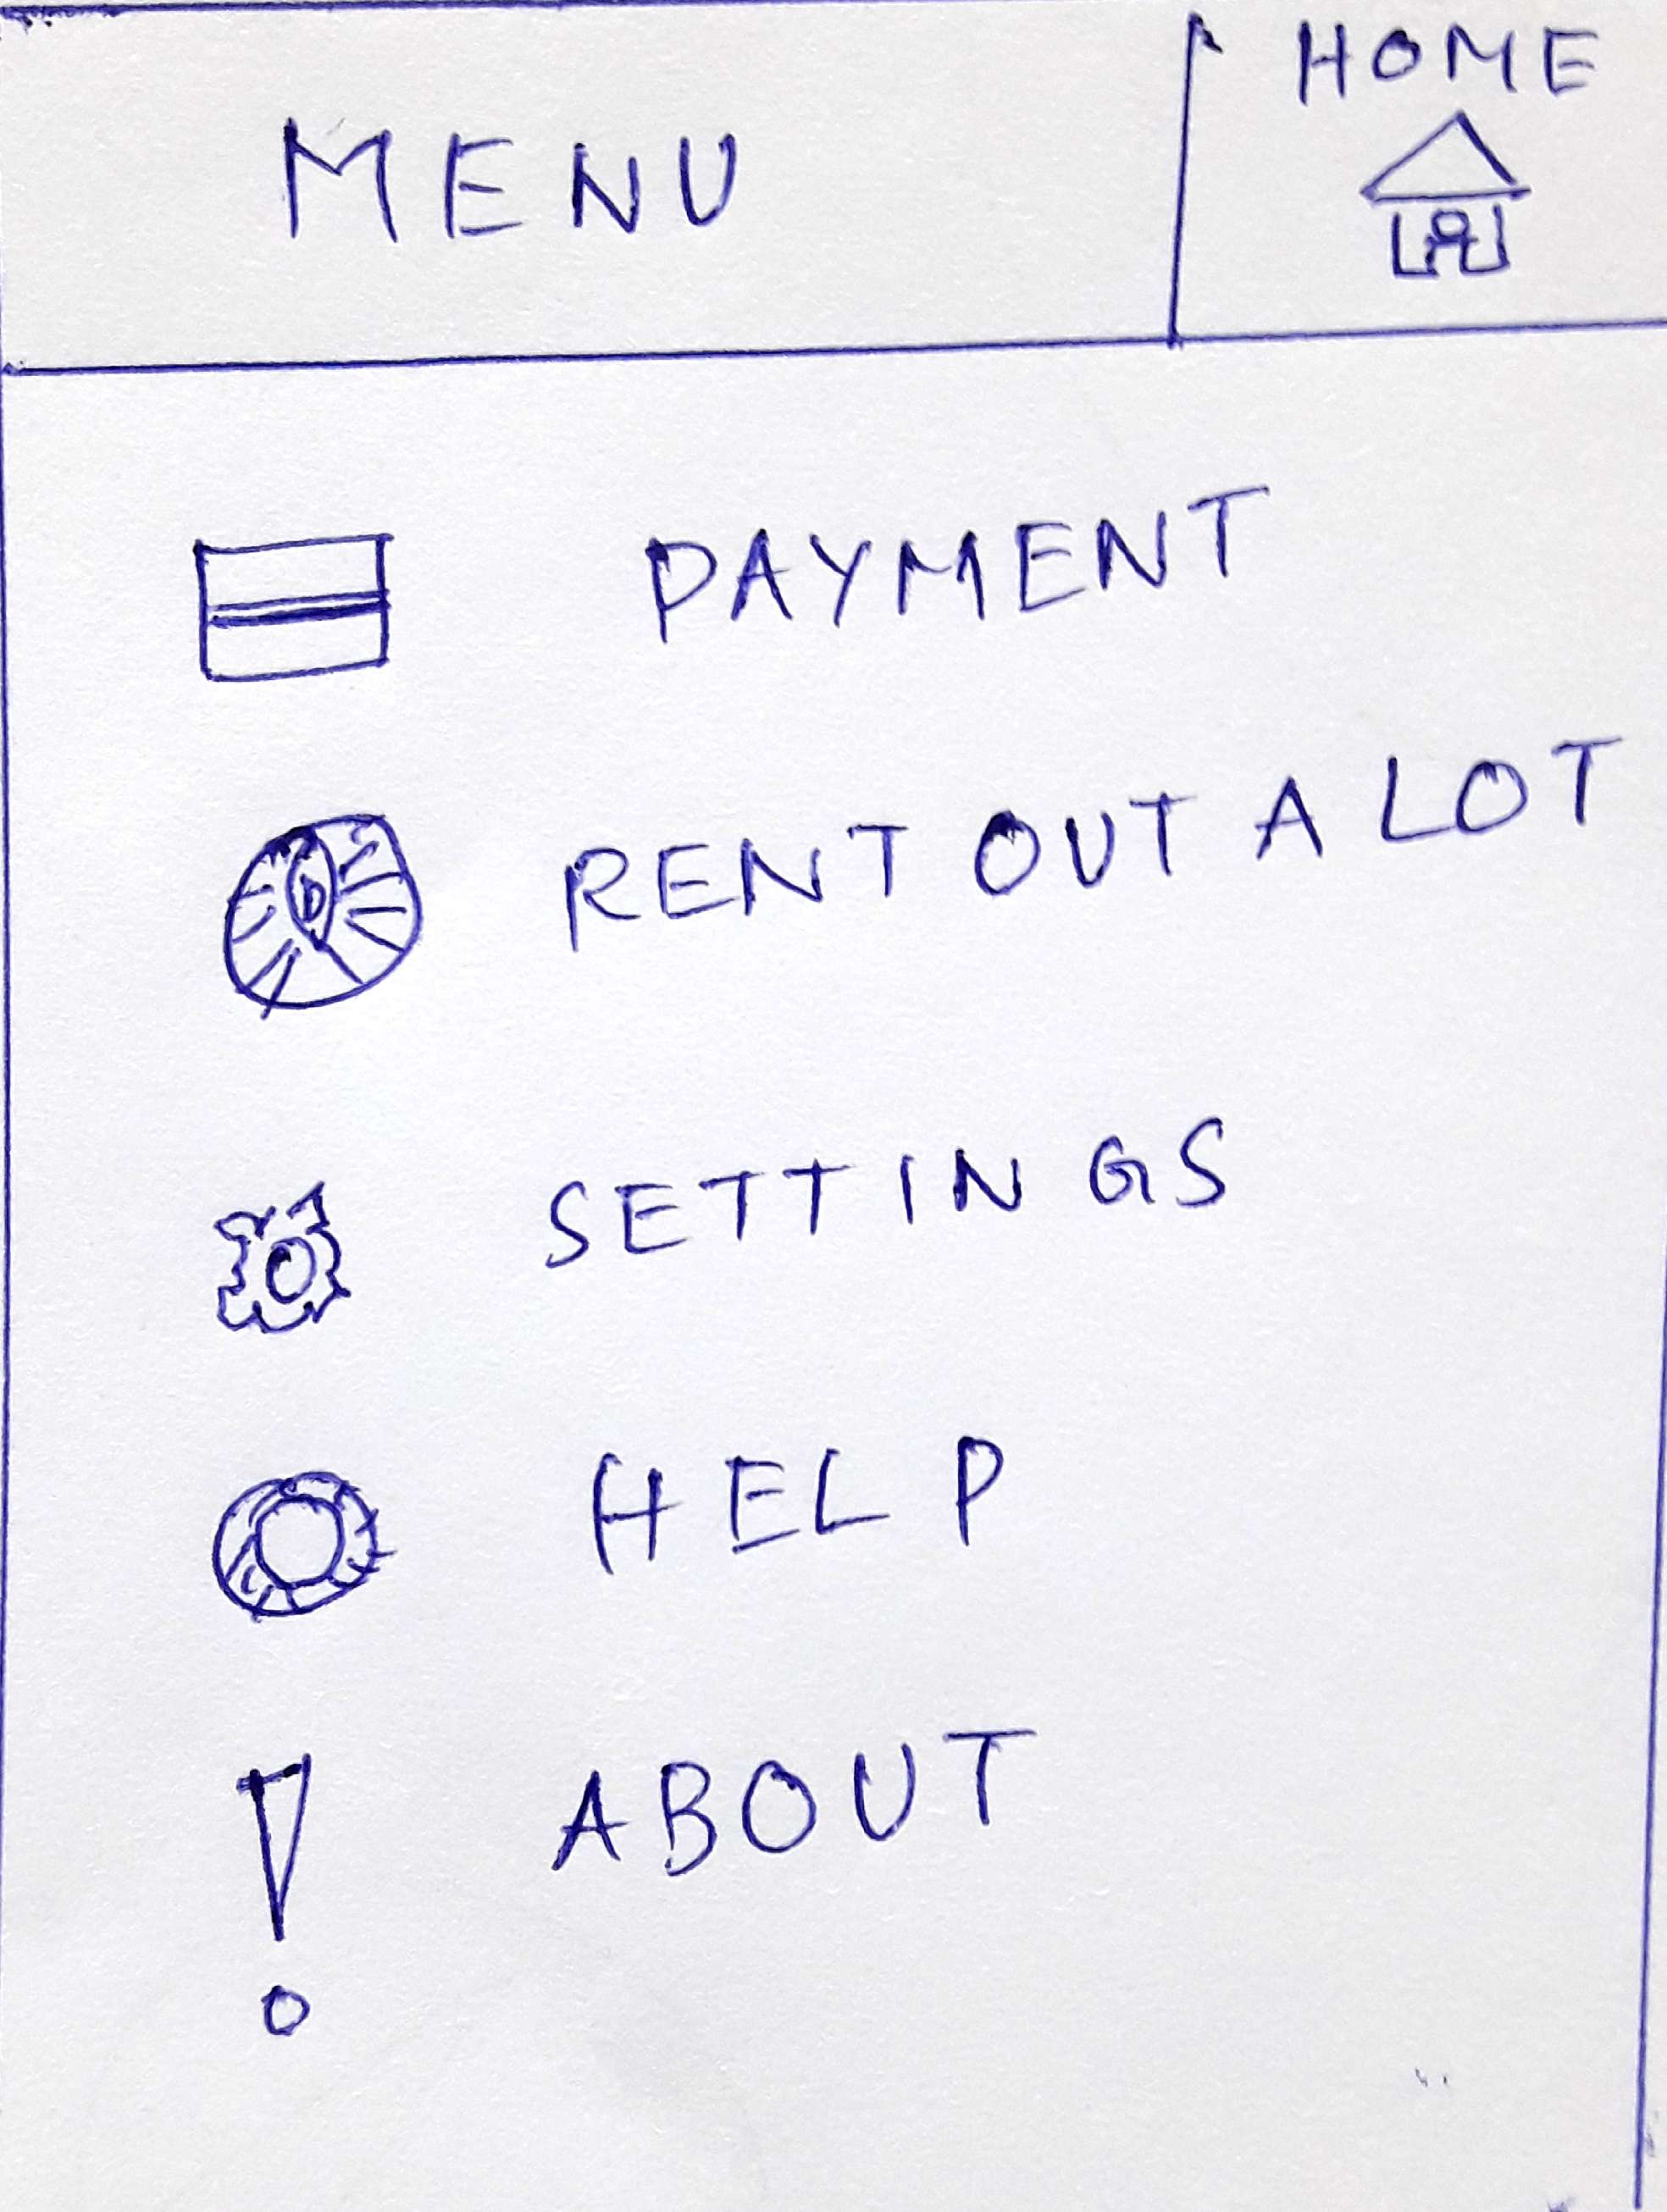 HOME
MENU
PAYMENT
RENT OUT A LOT
SETTINGS
HELP
ABOUT